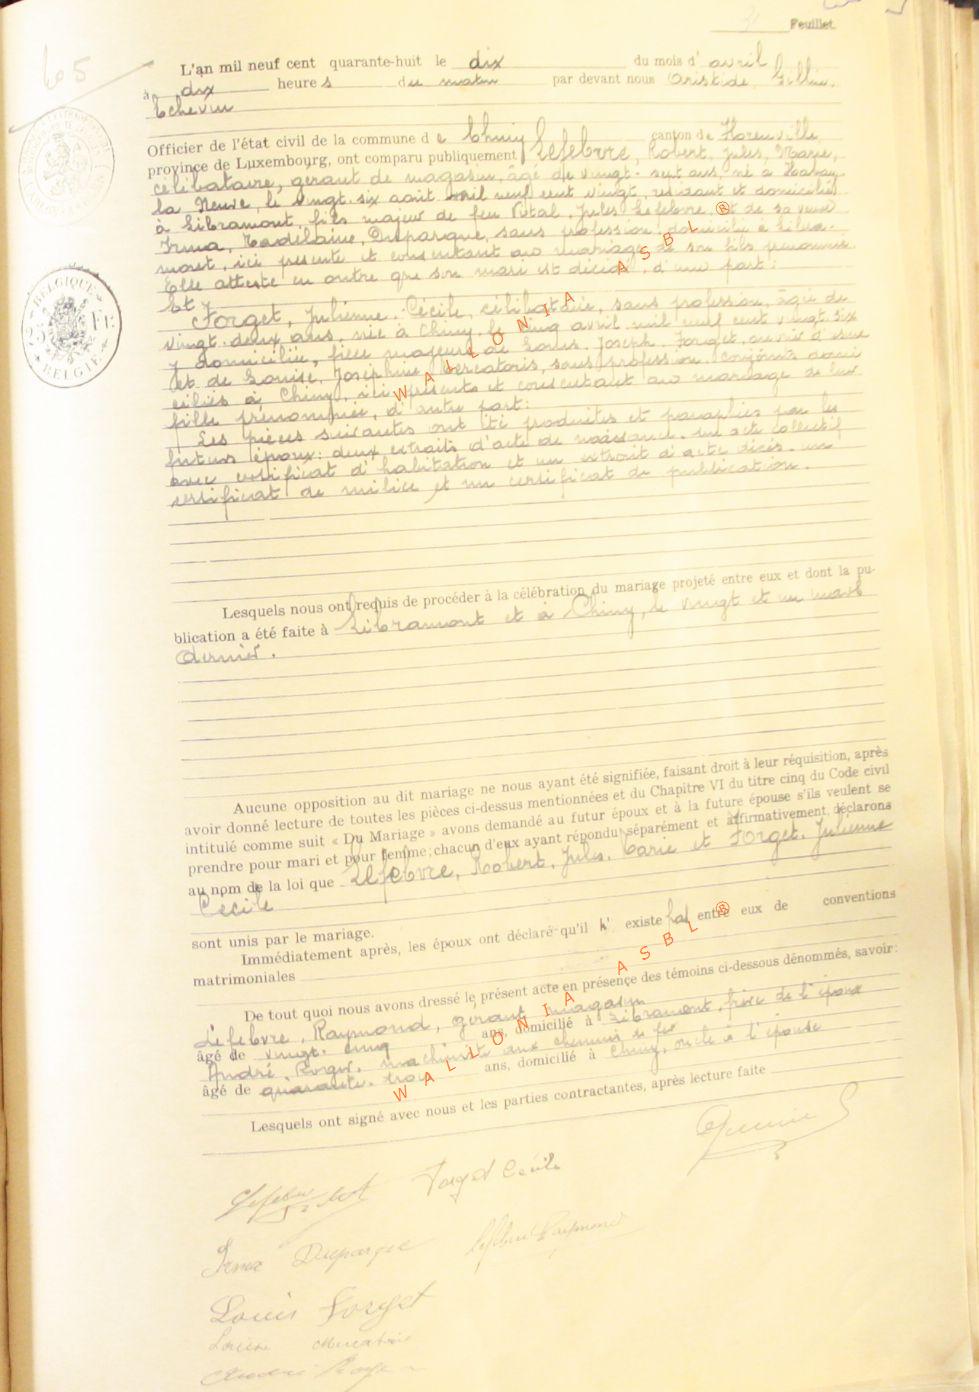 605
Feuillet.
L'an mil neuf cent quarante-huit le dix du mois d'avril
à dix heures du matin par devant nous Aristide Gillin,
Echevin
Officier de l'état civil de la commune de Chiny canton de Florenville
province de Luxembourg, ont comparu publiquement Lefebvre, Robert, Jules, Marie,
célibataire, gérant de magasin, âgé de vingt-sept ans, né à Habay-
la Neuve, le vingt-six août mil neuf cent vingt, résidant et domicilié
à Libramont, fils majeur de feu Vital, Jules Lefebvre et de sa veuve
Irma, Duparque, sans profession, domiciliée à Libra-
mont, ici présente et consentant au mariage de son fils prénommé.
Elle atteste en outre que son mari est décédé, d'une part:
Et Forget, Julienne, Cécile, célibataire, sans profession, âgée de
vingt-deux ans, née à Chiny, le cinq avril mil neuf cent vingt-six
y domiciliée, fille majeure de Louis, Joseph, Forget, ouvrier d'usine
et de Louise, Joséphine, Mercatoris, sans profession, conjoints domi
ciliés à Chiny, ici présents et consentant au mariage de leur
fille prénommée, d'autre part:
Les pièces suivantes ont été produites et paraphées par les
futurs époux: deux extraits d'acte de naissance, un acte collectif
avec certificat d'habitation et un extrait d'acte décès, un
certificat de milice et un certificat de publication.
Lesquels nous ont requis de procéder à la célébration du mariage projeté entre eux et dont la pu-
blication a été faite à Libramont et à Chiny, le vingt et un mars
dernier.
Aucune opposition au dit mariage ne nous ayant été signifiée, faisant droit à leur réquisition, après
avoir donné lecture de toutes les pièces ci-dessus mentionnées et du Chapitre VI du titre cinq du Code civil
intitulé comme suit « Du Mariage » avons demandé au futur époux et à la future épouse s'ils veulent se
prendre pour mari et pour femme; chacun d'eux ayant répondu séparément et affirmativement, déclarons
au nom de la loi que Lefebvre, Robert, Jules, Marie et Forget, Julienne
Cécile
sont unis par le mariage.
Immédiatement après, les époux ont déclaré qu'il n' existe pas entre eux de conventions
matrimoniales
De tout quoi nous avons dressé le présent acte en présence des témoins ci-dessous dénommés, savoir:
Lefebvre, Raymond, gérant magasin
âgé de vingt-cinq ans, domicilié à Libramont, frère de l'époux
André, Roger, machiniste aux chemins de fer
âgé de quarante-trois ans, domicilié à Chiny, oncle à l'épouse
Lesquels ont signé avec nous et les parties contractantes, après lecture faite
Forget Cécile
Irma Duparque Lefebvre Raymond
Louis Forget
BELGIQUE
BELGIË
WALLONIA ASBL ®
WALLONIA ASBL ®